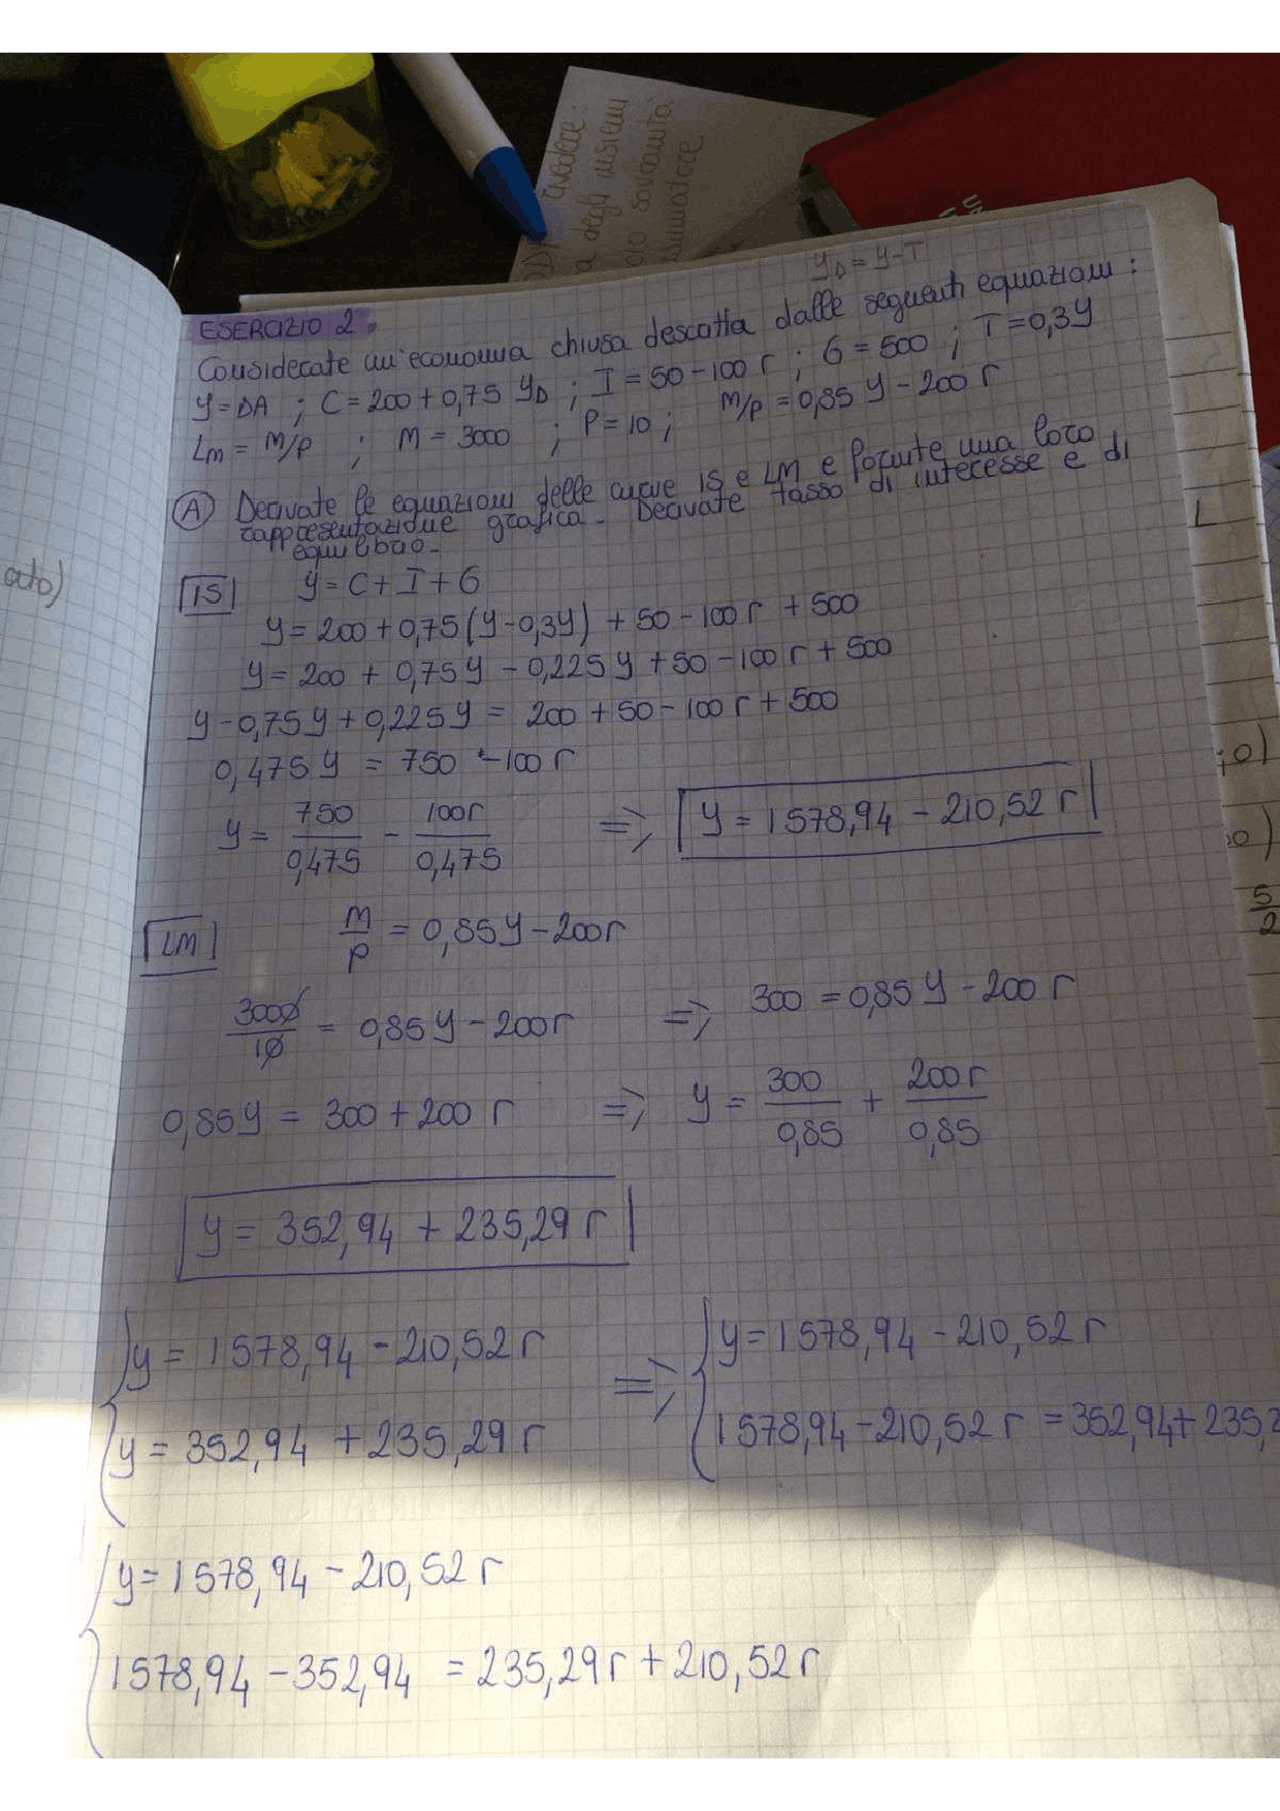 avedere:
a degli insiemi
Y_D = Y - T
ESERCIZIO 2.
Considerate un'economia chiusa descritta dalle seguenti equazioni:
Y = DA ; C = 200 + 0,75 Y_D ; I = 50 - 100 r ; G = 500 ; T = 0,3Y
Lm = M/P ; M = 3000 ; P = 10 ; M/P = 0,85 Y - 200 r
A Derivate le equazioni delle curve IS e LM e fornite una loro
rappresentazione grafica. Derivate tasso di interesse e di
equilibrio.
ato)
IS Y = C + I + G
Y = 200 + 0,75 (Y - 0,3Y) + 50 - 100 r + 500
Y = 200 + 0,75 Y - 0,225 Y + 50 - 100 r + 500
Y - 0,75 Y + 0,225 Y = 200 + 50 - 100 r + 500
0,475 Y = 750 - 100 r
Y = 750/0,475 - 100r/0,475 => Y = 1578,94 - 210,52 r
LM M/P = 0,85 Y - 200 r
3000/10 = 0,85 Y - 200 r => 300 = 0,85 Y - 200 r
0,85 Y = 300 + 200 r => Y = 300/0,85 + 200r/0,85
Y = 352,94 + 235,29 r
Y = 1578,94 - 210,52 r => Y = 1578,94 - 210,52 r
Y = 352,94 + 235,29 r 1578,94 - 210,52 r = 352,94 + 235,2
Y = 1578,94 - 210,52 r
1578,94 - 352,94 = 235,29 r + 210,52 r
L
;0)
0)
5/2